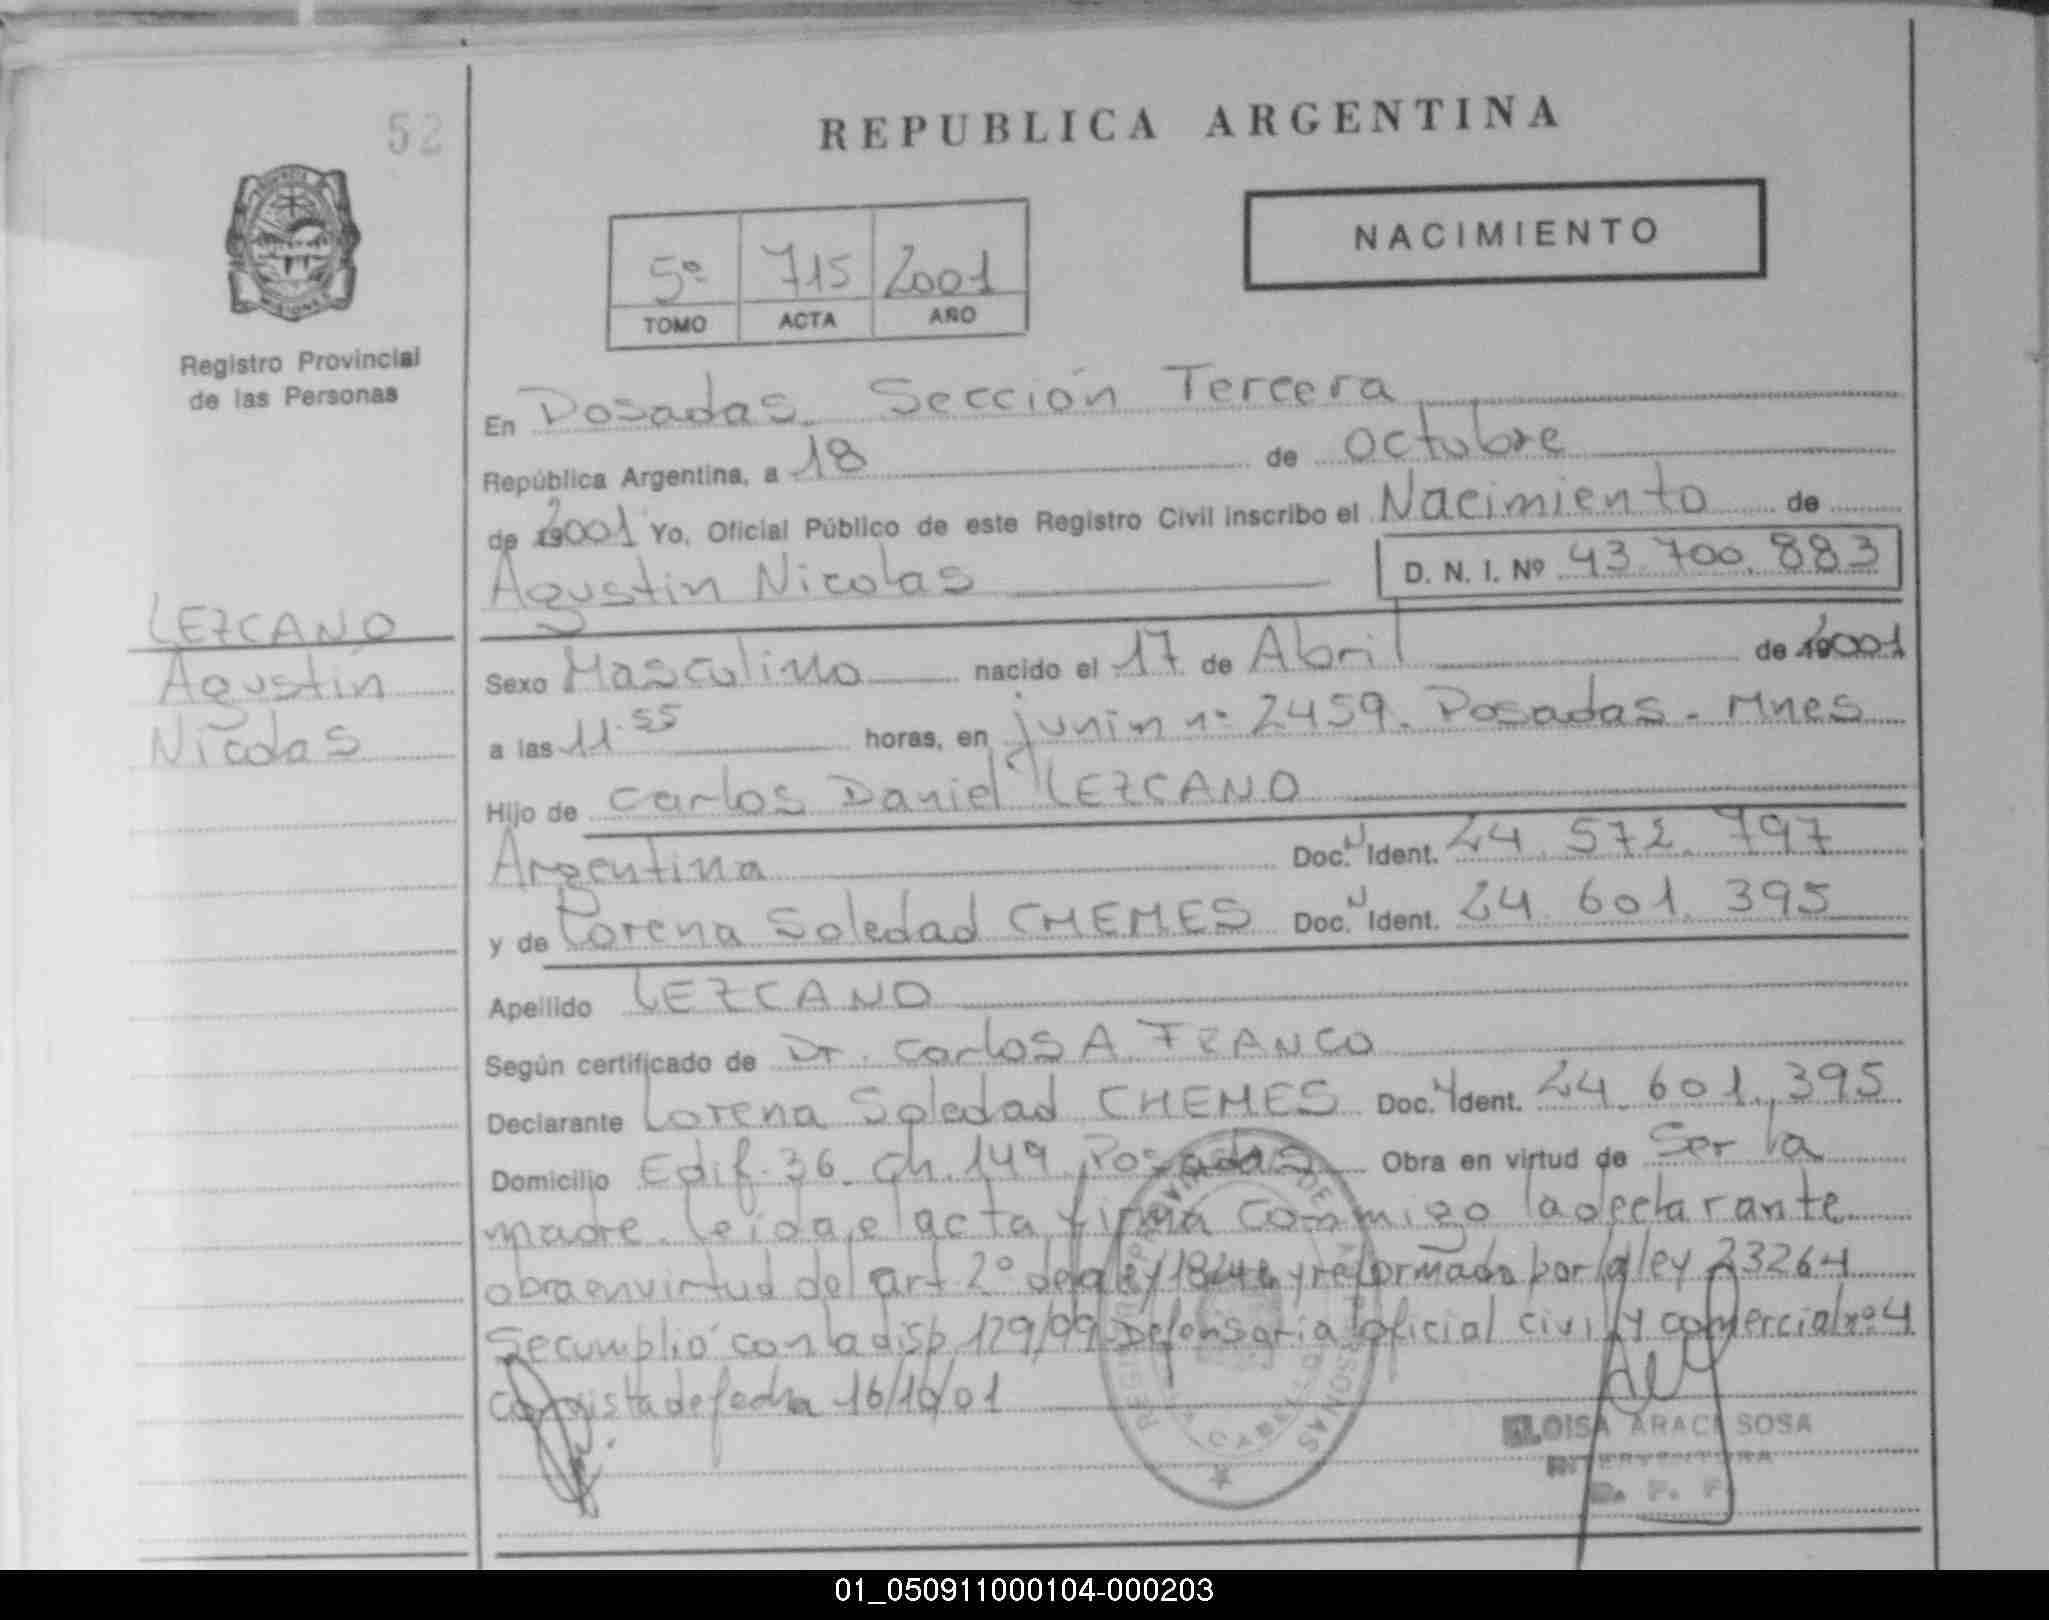 52
REPUBLICA ARGENTINA
NACIMIENTO
5º 715 2001
TOMO ACTA AÑO
Registro Provincial
de las Personas
En Posadas. Sección Tercera
República Argentina, a 18 de octubre
de 2001 Yo, Oficial Público de este Registro Civil inscribo el Nacimiento de
Agustin Nicolas D. N. I. Nº 43.700.883
LEZCANO
Agustin
Nicolas
Sexo Masculino nacido el 17 de Abril de 2001
a las 11.55 horas, en junin nº 2459. Posadas - Mnes
Hijo de Carlos Daniel LEZCANO
Argentina Doc. N Ident. 24.572.797
y de Lorena Soledad CHEMES Doc. N Ident. 24.601.395
Apellido LEZCANO
Según certificado de Dr. Carlos A FRANCO
Declarante Lorena Soledad CHEMES Doc. Ident. 24.601.395
Domicilio Edif. 36 Ch. 149 Posadas Obra en virtud de Ser la
madre. leida el acta firma conmigo la declarante
obra en virtud del art 2º de la ley 18248 y reformado por la ley 23264
Se cumplió con la disp 129/99 Defensoria oficial civil y comercial nº 4
con vista de fecha 16/10/01
ELOISA ARACI SOSA
INTERVENTORA
01_050911000104-000203